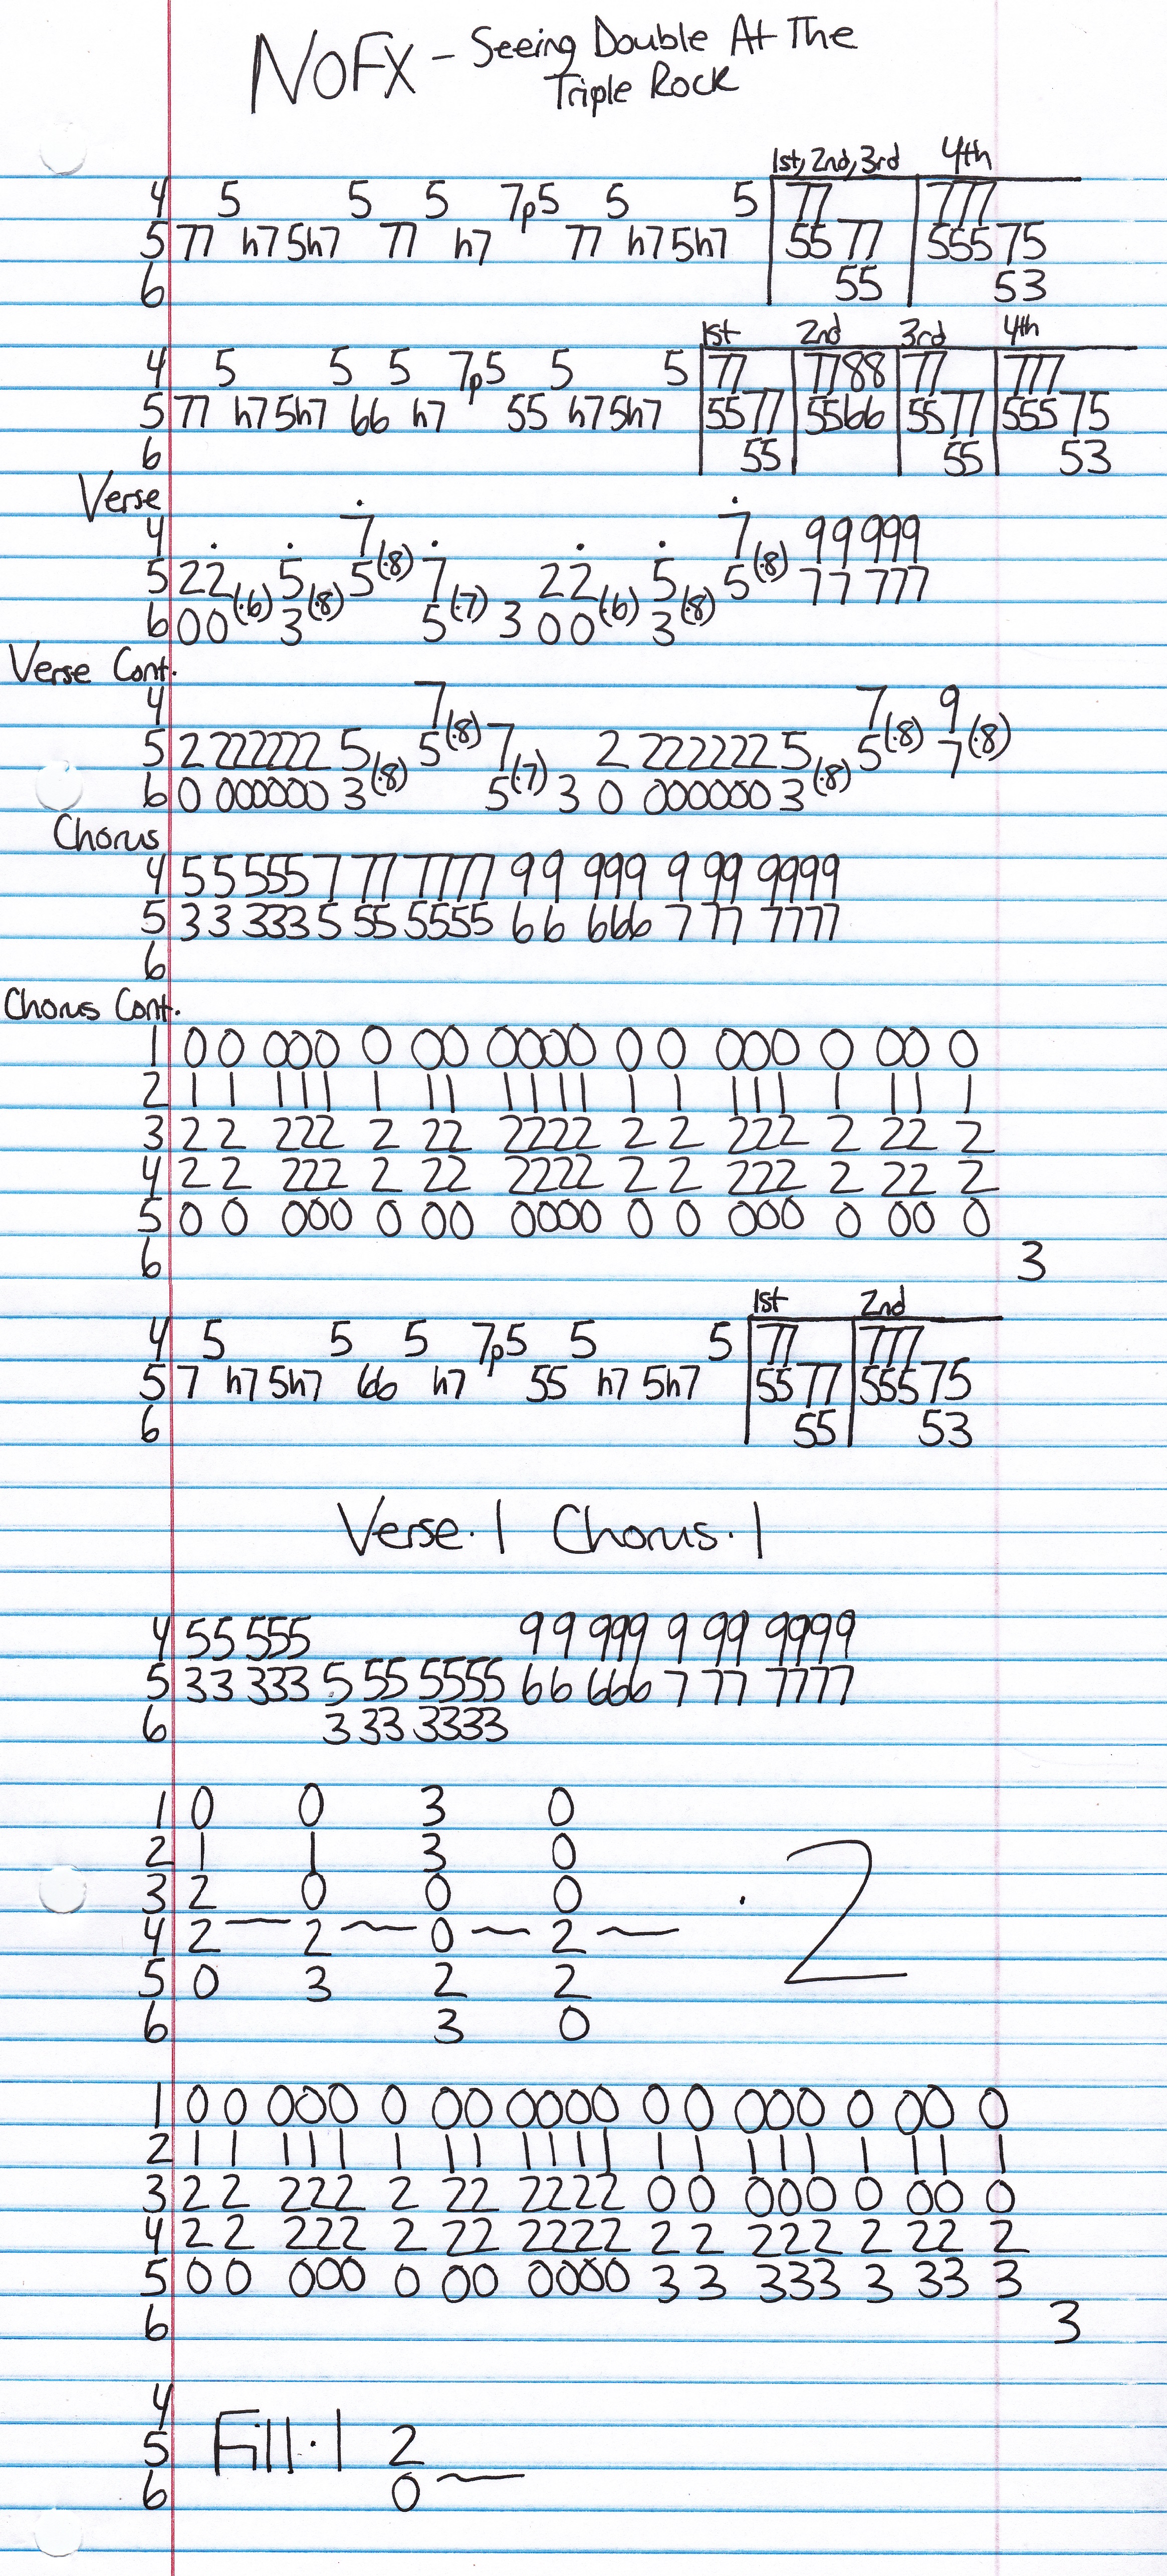 NOFX - Seeing Double At The
Triple Rock
1st, 2nd, 3rd 4th
4 5 5 5 7p5 5 5 77 777
5 77 h7 5h7 77 h7 77 h7 5h7 55 77 555 75
6 55 53
1st 2nd 3rd 4th
4 5 5 5 7p5 5 5 77 7788 77 777
5 77 h7 5h7 66 h7 55 h7 5h7 5577 5566 5577 555 75
6 55 55 53
Verse
4 7(.8) 7(.8) 99 999
5 22(.6) 5(.8) 5 7(.7) 22(.6) 5(.8) 5 77 777
6 00 3 5 3 00 3
Verse Cont.
4 7(.8) 7(.8) 9(.8)
5 2 222222 5(.8) 5 7(.7) 2 222222 5(.8) 5 7
6 0 000000 3 5 3 0 000000 3
Chorus
4 55 555 7 77 7777 99 999 9 99 9999
5 33 333 5 55 5555 66 666 7 77 7777
6
Chorus Cont.
1 00 000 0 00 0000 0 0 000 0 00 0
2 11 111 1 11 1111 1 1 111 1 11 1
3 22 222 2 22 2222 2 2 222 2 22 2
4 22 222 2 22 2222 2 2 222 2 22 2
5 00 000 0 00 0000 0 0 000 0 00 0
6 3
1st 2nd
4 5 5 5 7p5 5 5 77 777
5 7 h7 5h7 66 h7 55 h7 5h7 55 77 555 75
6 55 53
Verse.1 Chorus.1
4 55 555 99 999 9 99 9999
5 33 333 5 55 5555 66 666 7 77 7777
6 3 33 3333
1 0 0 3 0
2 1 1 3 0
3 2 0 0 0 .2
4 2 ~ 2 ~ 0 ~ 2 ~
5 0 3 2 2
6 3 0
1 00 000 0 00 0000 00 000 0 00 0
2 11 111 1 11 1111 11 111 1 11 1
3 22 222 2 22 2222 00 000 0 00 0
4 22 222 2 22 2222 22 222 2 22 2
5 00 000 0 00 0000 33 333 3 33 3
6 3
4
5 Fill.1 2
6 0 ~